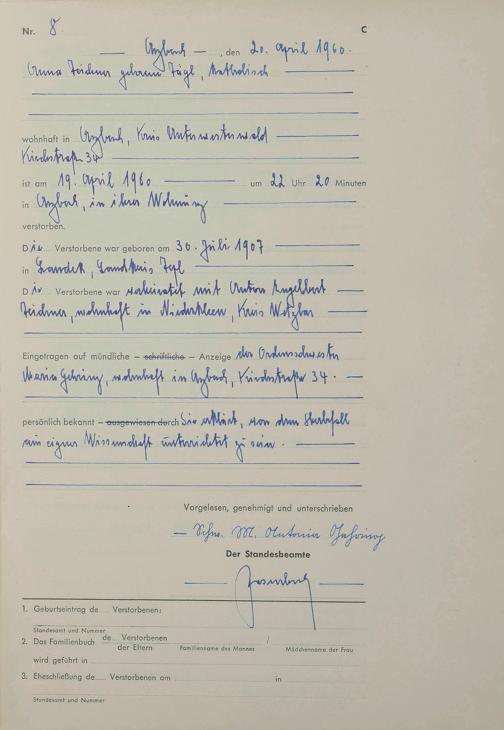 Nr. 8 C
Arzbach, den 20. April 1960.
Anna Zeidner geborene Jägl, katholisch
wohnhaft in Arzbach, Kreis Unterwesterwald
Kirchstraße 34
ist am 19. April 1960 um 22 Uhr 20 Minuten
in Arzbach, in ihrer Wohnung
verstorben.
Die Verstorbene war geboren am 30. Juli 1907
in Landek, Landkreis Tepl
Die Verstorbene war verheiratet mit Anton Engelbert
Zeidner, wohnhaft in Niederkleen, Kreis Wetzlar
Eingetragen auf mündliche – schriftliche – Anzeige der Ordensschwester
Maria Gehring, wohnhaft in Arzbach, Kirchstraße 34.
persönlich bekannt – ausgewiesen durch Sie erklärt, von dem Sterbefall
aus eigner Wissenschaft unterrichtet zu sein.
Vorgelesen, genehmigt und unterschrieben
Schw. M. Antonia Gehring
Der Standesbeamte
1. Geburtseintrag de Verstorbenen:
Standesamt und Nummer
2. Das Familienbuch de Verstorbenen /
der Eltern Familienname des Mannes Mädchenname der Frau
wird geführt in
3. Eheschließung de Verstorbenen am in
Standesamt und Nummer